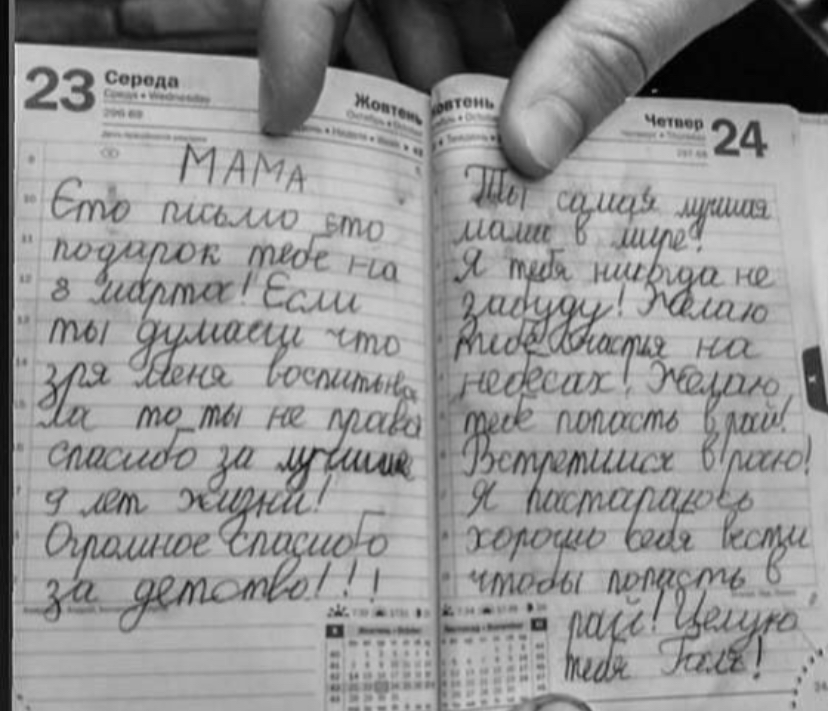 23 Середа
Среда • Wednesday
296-69
Жовтень
МАМА
Єто письмо ето
подарок тебе на
8 марта! Если
ты думаеш что
зря меня воспитыва
ла то ты не права
спасибо за лучшие
9 лет жизни!
Огромное спасибо
за детство!!!
Жовтень
Четвер 24
Четверг • Thursday
297-68
Ты самая лучшая
мама в мире!
Я тебя никогда не
забуду! Желаю
тебе счастья на
небесах! Желаю
тебе попасть в рай!
Встретимся в раю!
Я пастараюсь
хорошо себя вести
чтобы попасть в
рай! Целую
тебя Галя!